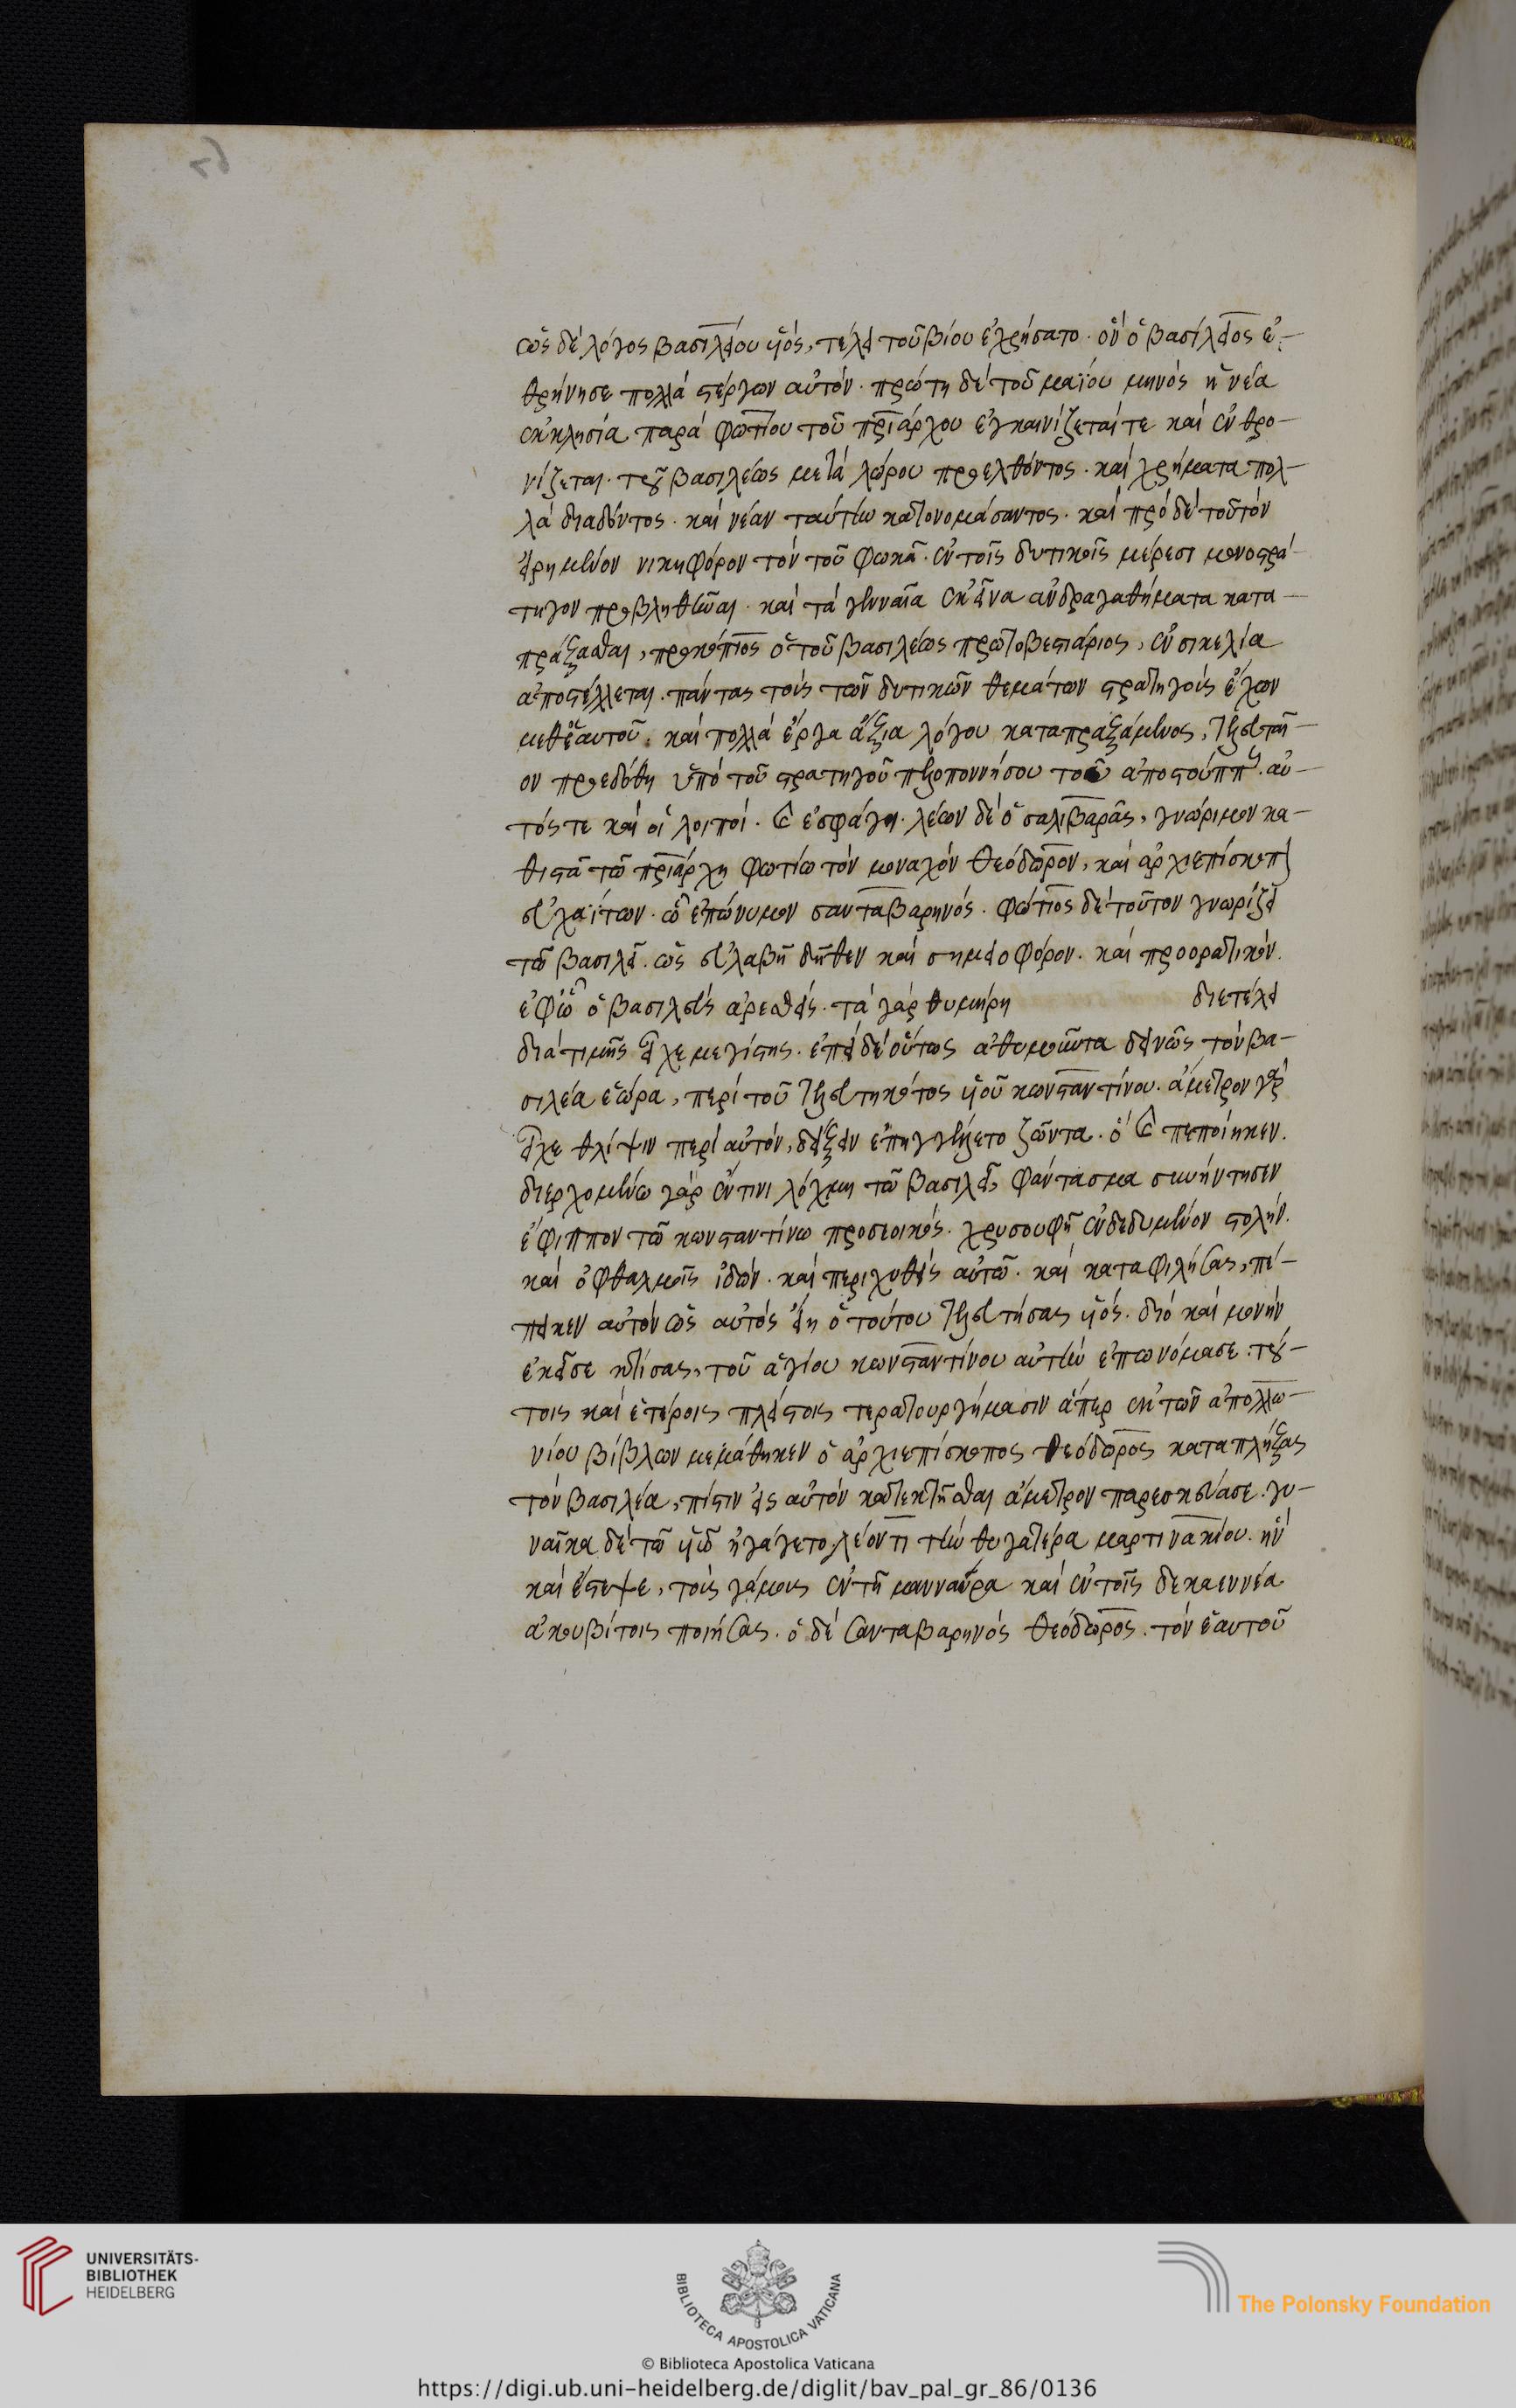 ὡς δὲ λόγος βασιλείου υἱός, τέλει τοῦ βίου ἐχρήσατο. ὃν ὁ βασίλειος ἐ-
θρήνησε πολλὰ στέργων αὐτόν. πρώτη δὲ τοῦ μαΐου μηνὸς ἡ νέα
ἐκκλησία παρὰ φωτίου τοῦ πριάρχου ἐγκαινίζεταί τε καὶ ἐνθρο-
νίζεται. τοῦ βασιλέως μετὰ λώρου προελθόντος. καὶ χρήματα πολ-
λὰ διαδόντος. καὶ νέαν ταύτην κατονομάσαντος. καὶ πρὸ δὲ τοῦ τὸν
εἰρημένον νικηφόρον τὸν τοῦ φωκᾶ. ἐν τοῖς δυτικοῖς μέρεσι μονοστρά-
τηγον προβληθῆναι. καὶ τὰ γενναῖα ἐκεῖνα ἀνδραγαθήματα κατα-
πράξασθαι, προκόπιος ὁ τοῦ βασιλέως πρωτοβεστιάριος, ἐν σικελία
ἀποστέλλεται. πάντας τοὺς τῶν δυτικῶν θεμάτων στρατηγοὺς ἔχων
μεθ' ἑαυτοῦ. καὶ πολλὰ ἔργα ἄξια λόγου καταπραξάμενος, τελευταῖ-
ον προεδόθη ὑπὸ τοῦ στρατηγοῦ πελοποννήσου τοῦ ἀποστύππη. αὐ-
τός τε καὶ οἱ λοιποί. καὶ ἐσφάγη. λέων δὲ ὁ σαλιβαρᾶς, γνώριμον κα-
θιστᾶ τῶ πριάρχη φωτίω τὸν μοναχὸν θεόδωρον, καὶ ἀρχιεπίσκοπον
εὐχαΐτων. ὧ ἐπώνυμον σανταβαρηνός. φώτιος δὲ τοῦτον γνωρίζει
τῶ βασιλεῖ. ὡς εὐλαβῆ δῆθεν καὶ σημειοφόρον. καὶ προορατικόν.
ἐφ' ὧ ὁ βασιλεὺς ἀρεσθείς. τὰ γὰρ θυμήρη διετέλει
διὰ τιμῆς εἶχε μεγίστης. ἐπεὶ δὲ οὕτως ἀθυμοῦντα δεινῶς τὸν βα-
σιλέα ἑώρα, περὶ τοῦ τελευτηκότος υἱοῦ κωνσταντίνου. ἄμετρον γὰρ
εἶχε θλίψιν περὶ αὐτόν, δείξειν ἐπηγγέλλετο ζῶντα. ὃ καὶ πεποίηκεν.
διερχομένω γὰρ ἔν τινι λόχμη τῶ βασιλεῖ, φάντασμα συνήντησεν
ἔφιππον τῶ κωνσταντίνω προσεοικός. χρυσουφῆ ἐνδεδυμένον στολήν.
καὶ ὀφθαλμοῖς ἰδών. καὶ περιχυθεὶς αὐτῶ. καὶ καταφιλήσας, πέ-
πεικεν αὐτὸν ὡς αὐτὸς εἴη ὁ τούτου τελευτήσας υἱός. διὸ καὶ μονὴν
ἐκεῖσε κτίσας, τοῦ ἁγίου κωνσταντίνου αὐτὴν ἐπωνόμασε. τού-
τοις καὶ ἑτέροις πλείστοις τερατουργήμασιν ἅπερ ἐκ τῶν ἀπολλω-
νίου βίβλων μεμάθηκεν ὁ ἀρχιεπίσκοπος θεόδωρος καταπλήξας
τὸν βασιλέα, πίστιν εἰς αὐτὸν κατεκτῆσθαι ἄμετρον παρεσκεύασε. γυ-
ναῖκα δὲ τῶ υἱῶ ἠγάγετο λέοντι τὴν θυγατέρα μαρτινακίου. ἣν
καὶ ἔστεψε, τοὺς γάμους ἐν τῆ μανναύρα καὶ ἐν τοῖς δεκαεννέα
ἀκουβίτοις ποιήσας. ὁ δὲ σανταβαρηνὸς θεόδωρος. τὸν ἑαυτοῦ
UNIVERSITÄTS-
BIBLIOTHEK
HEIDELBERG
BIBLIOTECA APOSTOLICA VATICANA
© Biblioteca Apostolica Vaticana
The Polonsky Foundation
https://digi.ub.uni-heidelberg.de/diglit/bav_pal_gr_86/0136